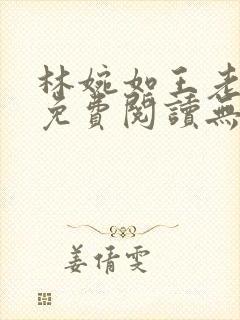 林婉如王老
免費閱讀無
姜倩雯